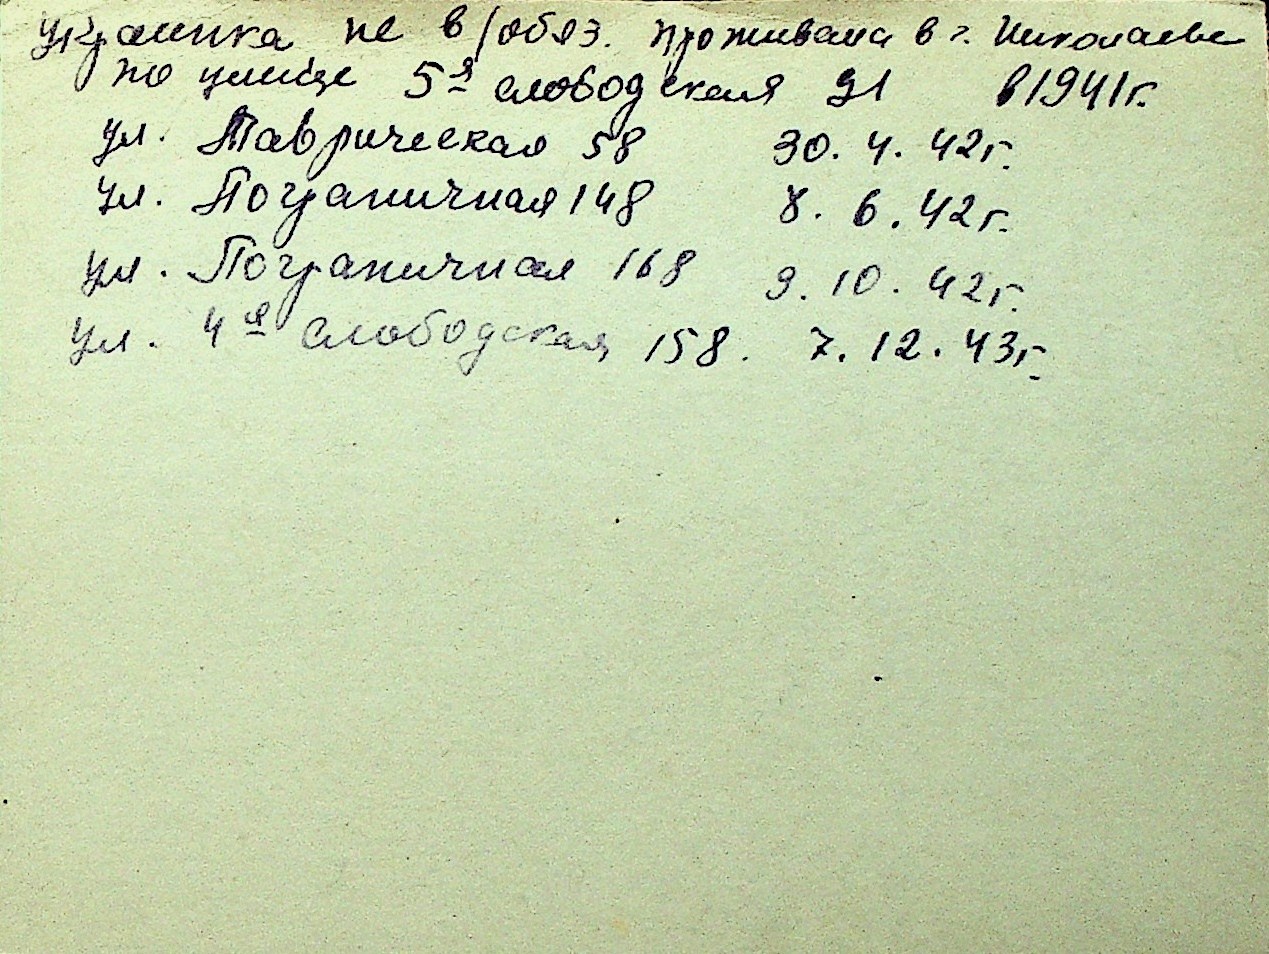 украинка не в/обяз. проживала в г. Николаеве
по улице 5я слободская 91 в 1941г.
ул. Таврическая 58 30. 4. 42г.
ул. Пограничная 148 8. 6. 42г.
ул. Пограничная 168 9. 10. 42г.
ул. 4я слободская 158. 7. 12. 43г.